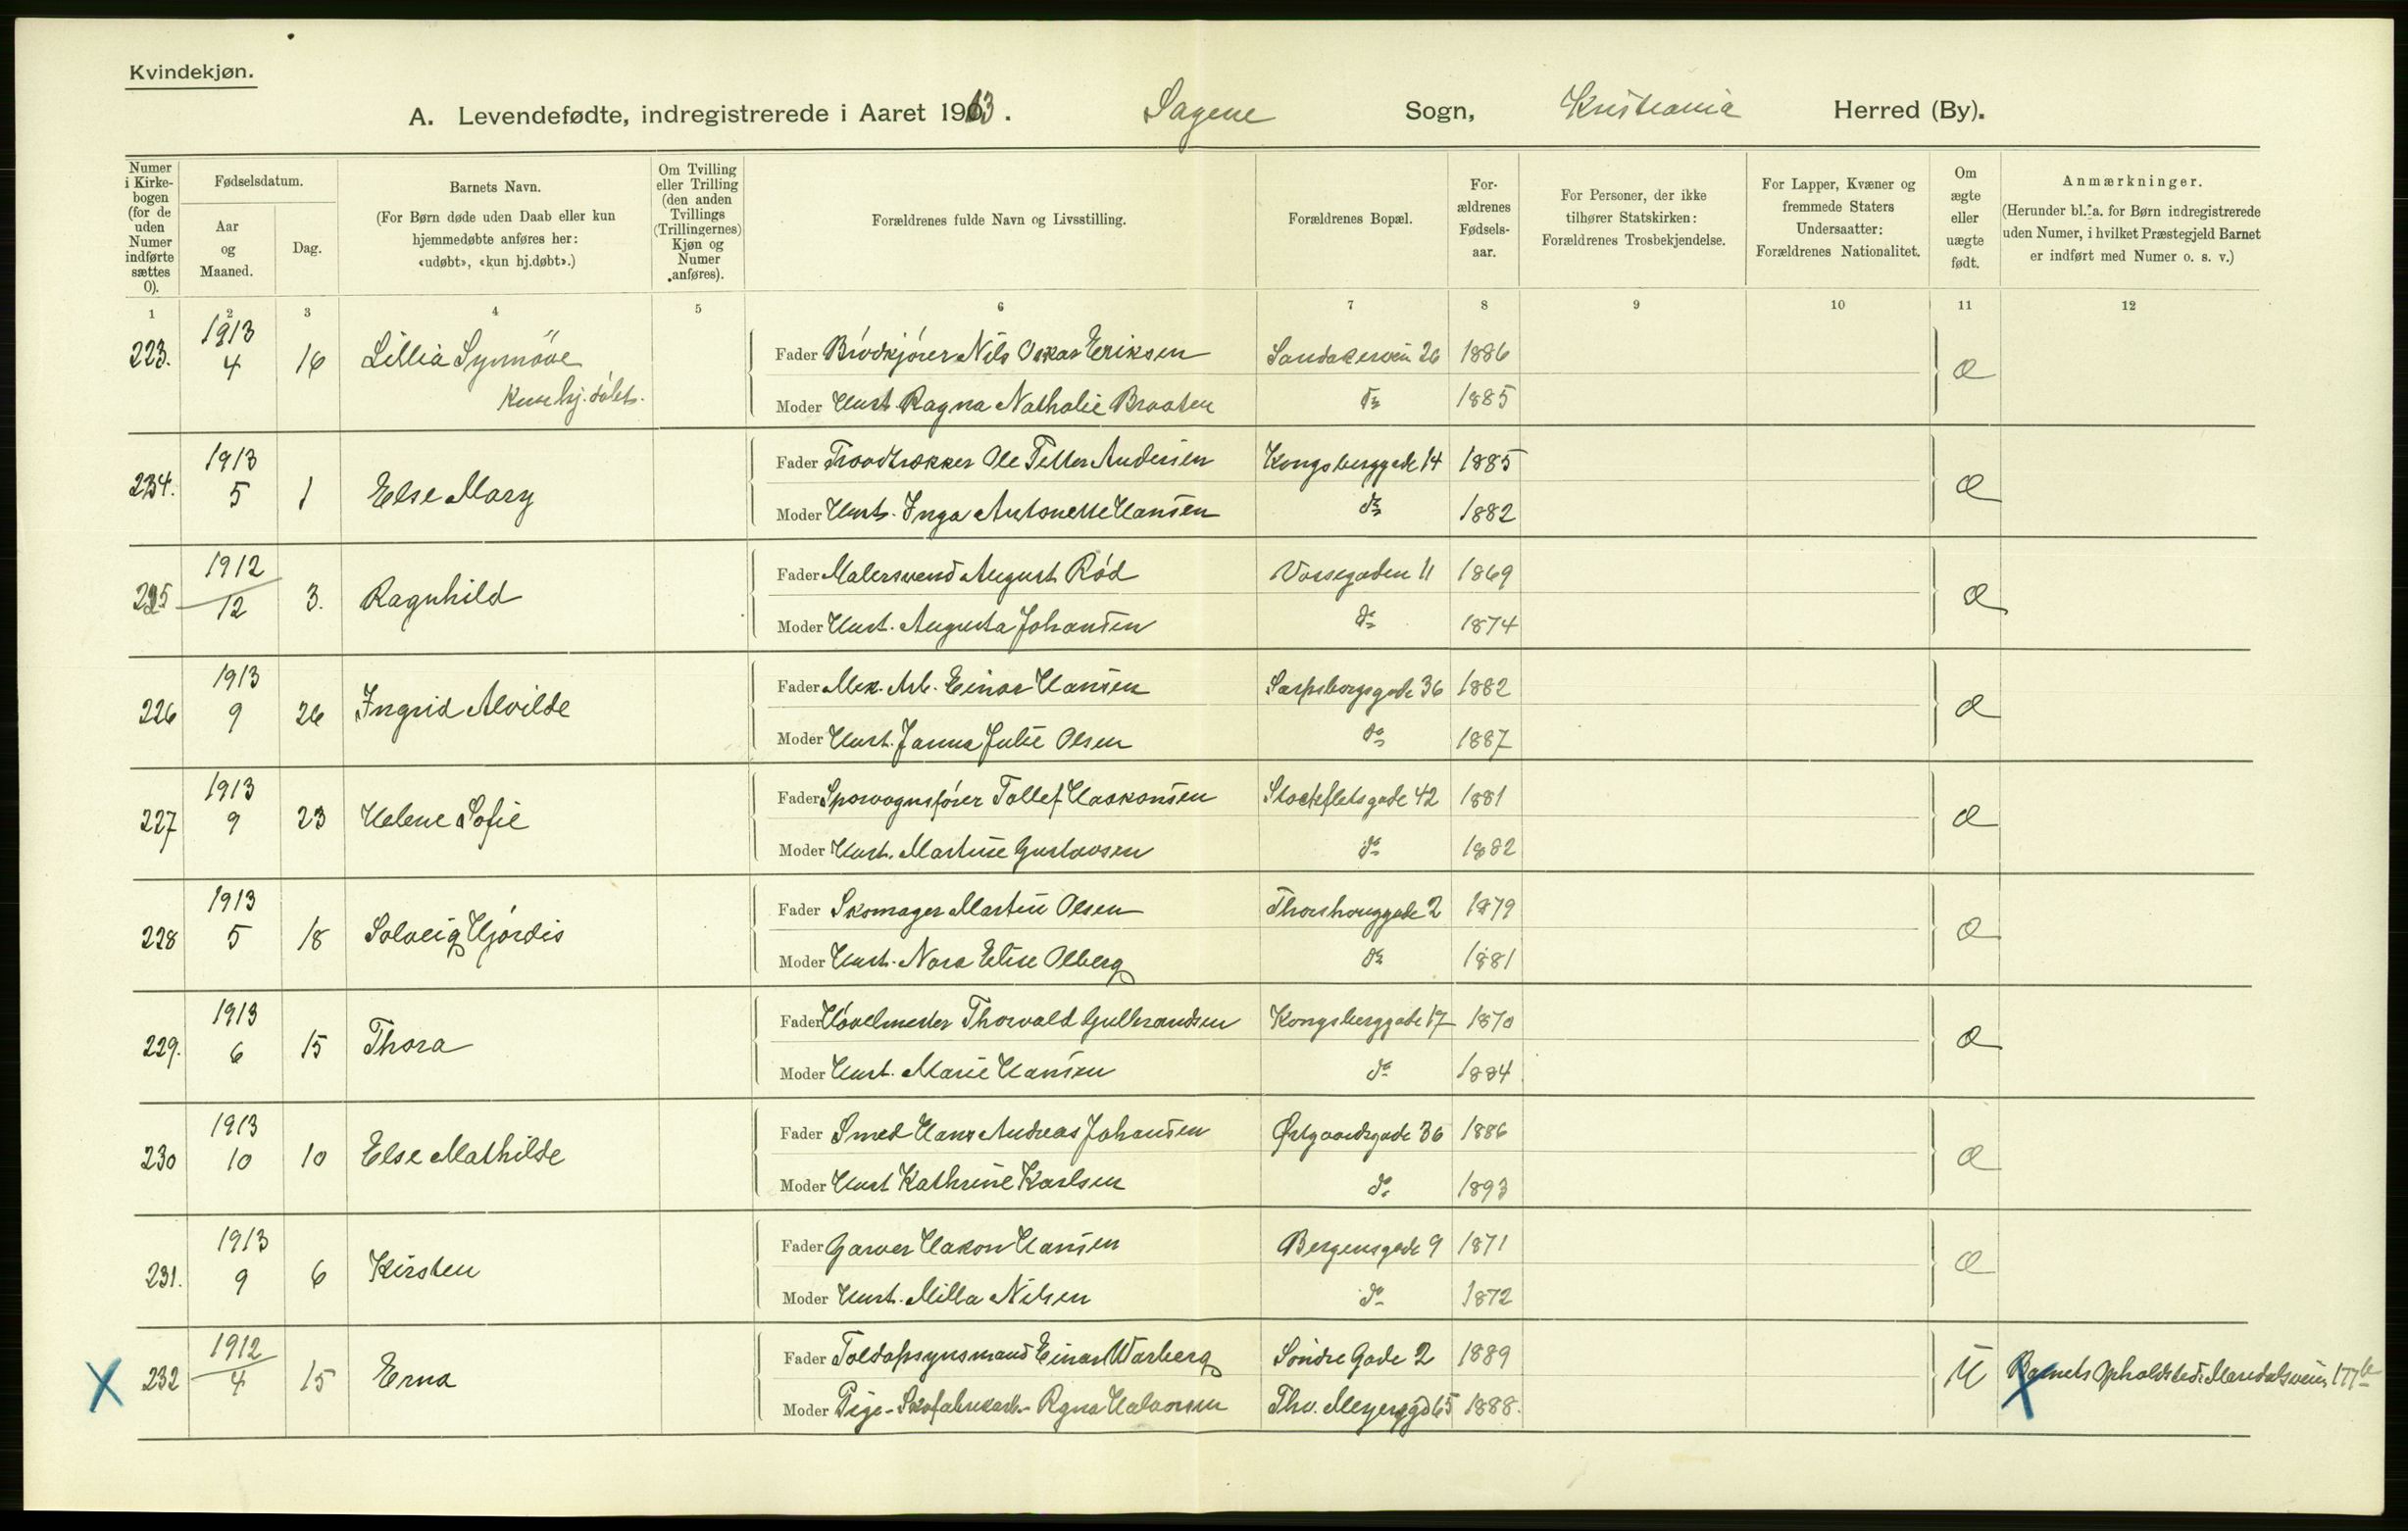 Kvindekjøn.
A. Levendefødte, indregistrerede i Aaret 1913. Sagene Sogn, Kristiania Herred (By).
Numer i Kirkebogen (for de uden Numer indførte sættes 0).
Fødselsdatum.
Aar og Maaned.
Dag.
Barnets Navn.
(For Børn døde uden Daab eller kun hjemmedøbte anføres her: «udøbt», «kun hj.døbt».)
Om Tvilling eller Trilling (den anden Tvillings (Trillingernes) Kjøn og Numer anføres).
Forældrenes fulde Navn og Livsstilling.
Forældrenes Bopæl.
Forældrenes Fødselsaar.
For Personer, der ikke tilhører Statskirken: Forældrenes Trosbekjendelse.
For Lapper, Kvæner og fremmede Staters Undersaatter: Forældrenes Nationalitet.
Om ægte eller uægte født.
Anmærkninger.
(Herunder bl. a. for Børn indregistrerede uden Numer, i hvilket Præstegjeld Barnet er indført med Numer o. s. v.)
1 2 3 4 5 6 7 8 9 10 11 12
223. 1913 4 16 Lillia Synnöve Kun hj. døbt.
Fader Brødkjører Nils Oskar Eriksen Sandakerveien 26 1886 æ
Moder Hust. Ragna Nathalie Braaten do 1885
234. 1913 5 1 Else Mary
Fader Traadtrækker Ole Petter Andersen Kongsberggade 14 1885 æ
Moder Hust. Inga Antonette Hansen do 1882
225 1912 12 3. Ragnhild
Fader Malersvend August Rød Vossegaden 11 1869 æ
Moder Hust. Augusta Johansen do 1874
226 1913 9 26 Ingrid Alvilde
Fader Mek. Arb. Einar Hansen Sarpsborggade 36 1882 æ
Moder Hust. Janna Julie Olsen do 1887
227 1913 9 23 Helene Sofie
Fader Sporvognsfører Tollef Haakonsen Stockfletsgade 42 1881 æ
Moder Hust. Martine Gustavsen do 1882
228 1913 5 18 Solveig Hjördis
Fader Skomager Martin Olsen Thorshauggade 2 1879 æ
Moder Hust. Nora Elise Olberg do 1881
229. 1913 6 15 Thora
Fader Høvelmester Thorvald Gulbrandsen Kongsberggade 17 1870 æ
Moder Hust. Marie Hansen do 1884
230 1913 10 10 Else Mathilde
Fader Smed Hans Andreas Johansen Østgaardsgade 36 1886 æ
Moder Hust Kathrine Karlsen do 1893
231. 1913 9 6 Kirsten
Fader Garver Hakon Hansen Bergensgade 9 1871 æ
Moder Hust. Milla Nilsen do 1872
X 232 1912 4 15 Erna
Fader Toldopsynsmand Einar Warberg Söndre Gade 2 1889 U X Barnets Opholdsted: Maridalsveien 177b
Moder Pige - Skofabrikarb. Ragna Halvorsen Thv. Meyersgd 65 1888.